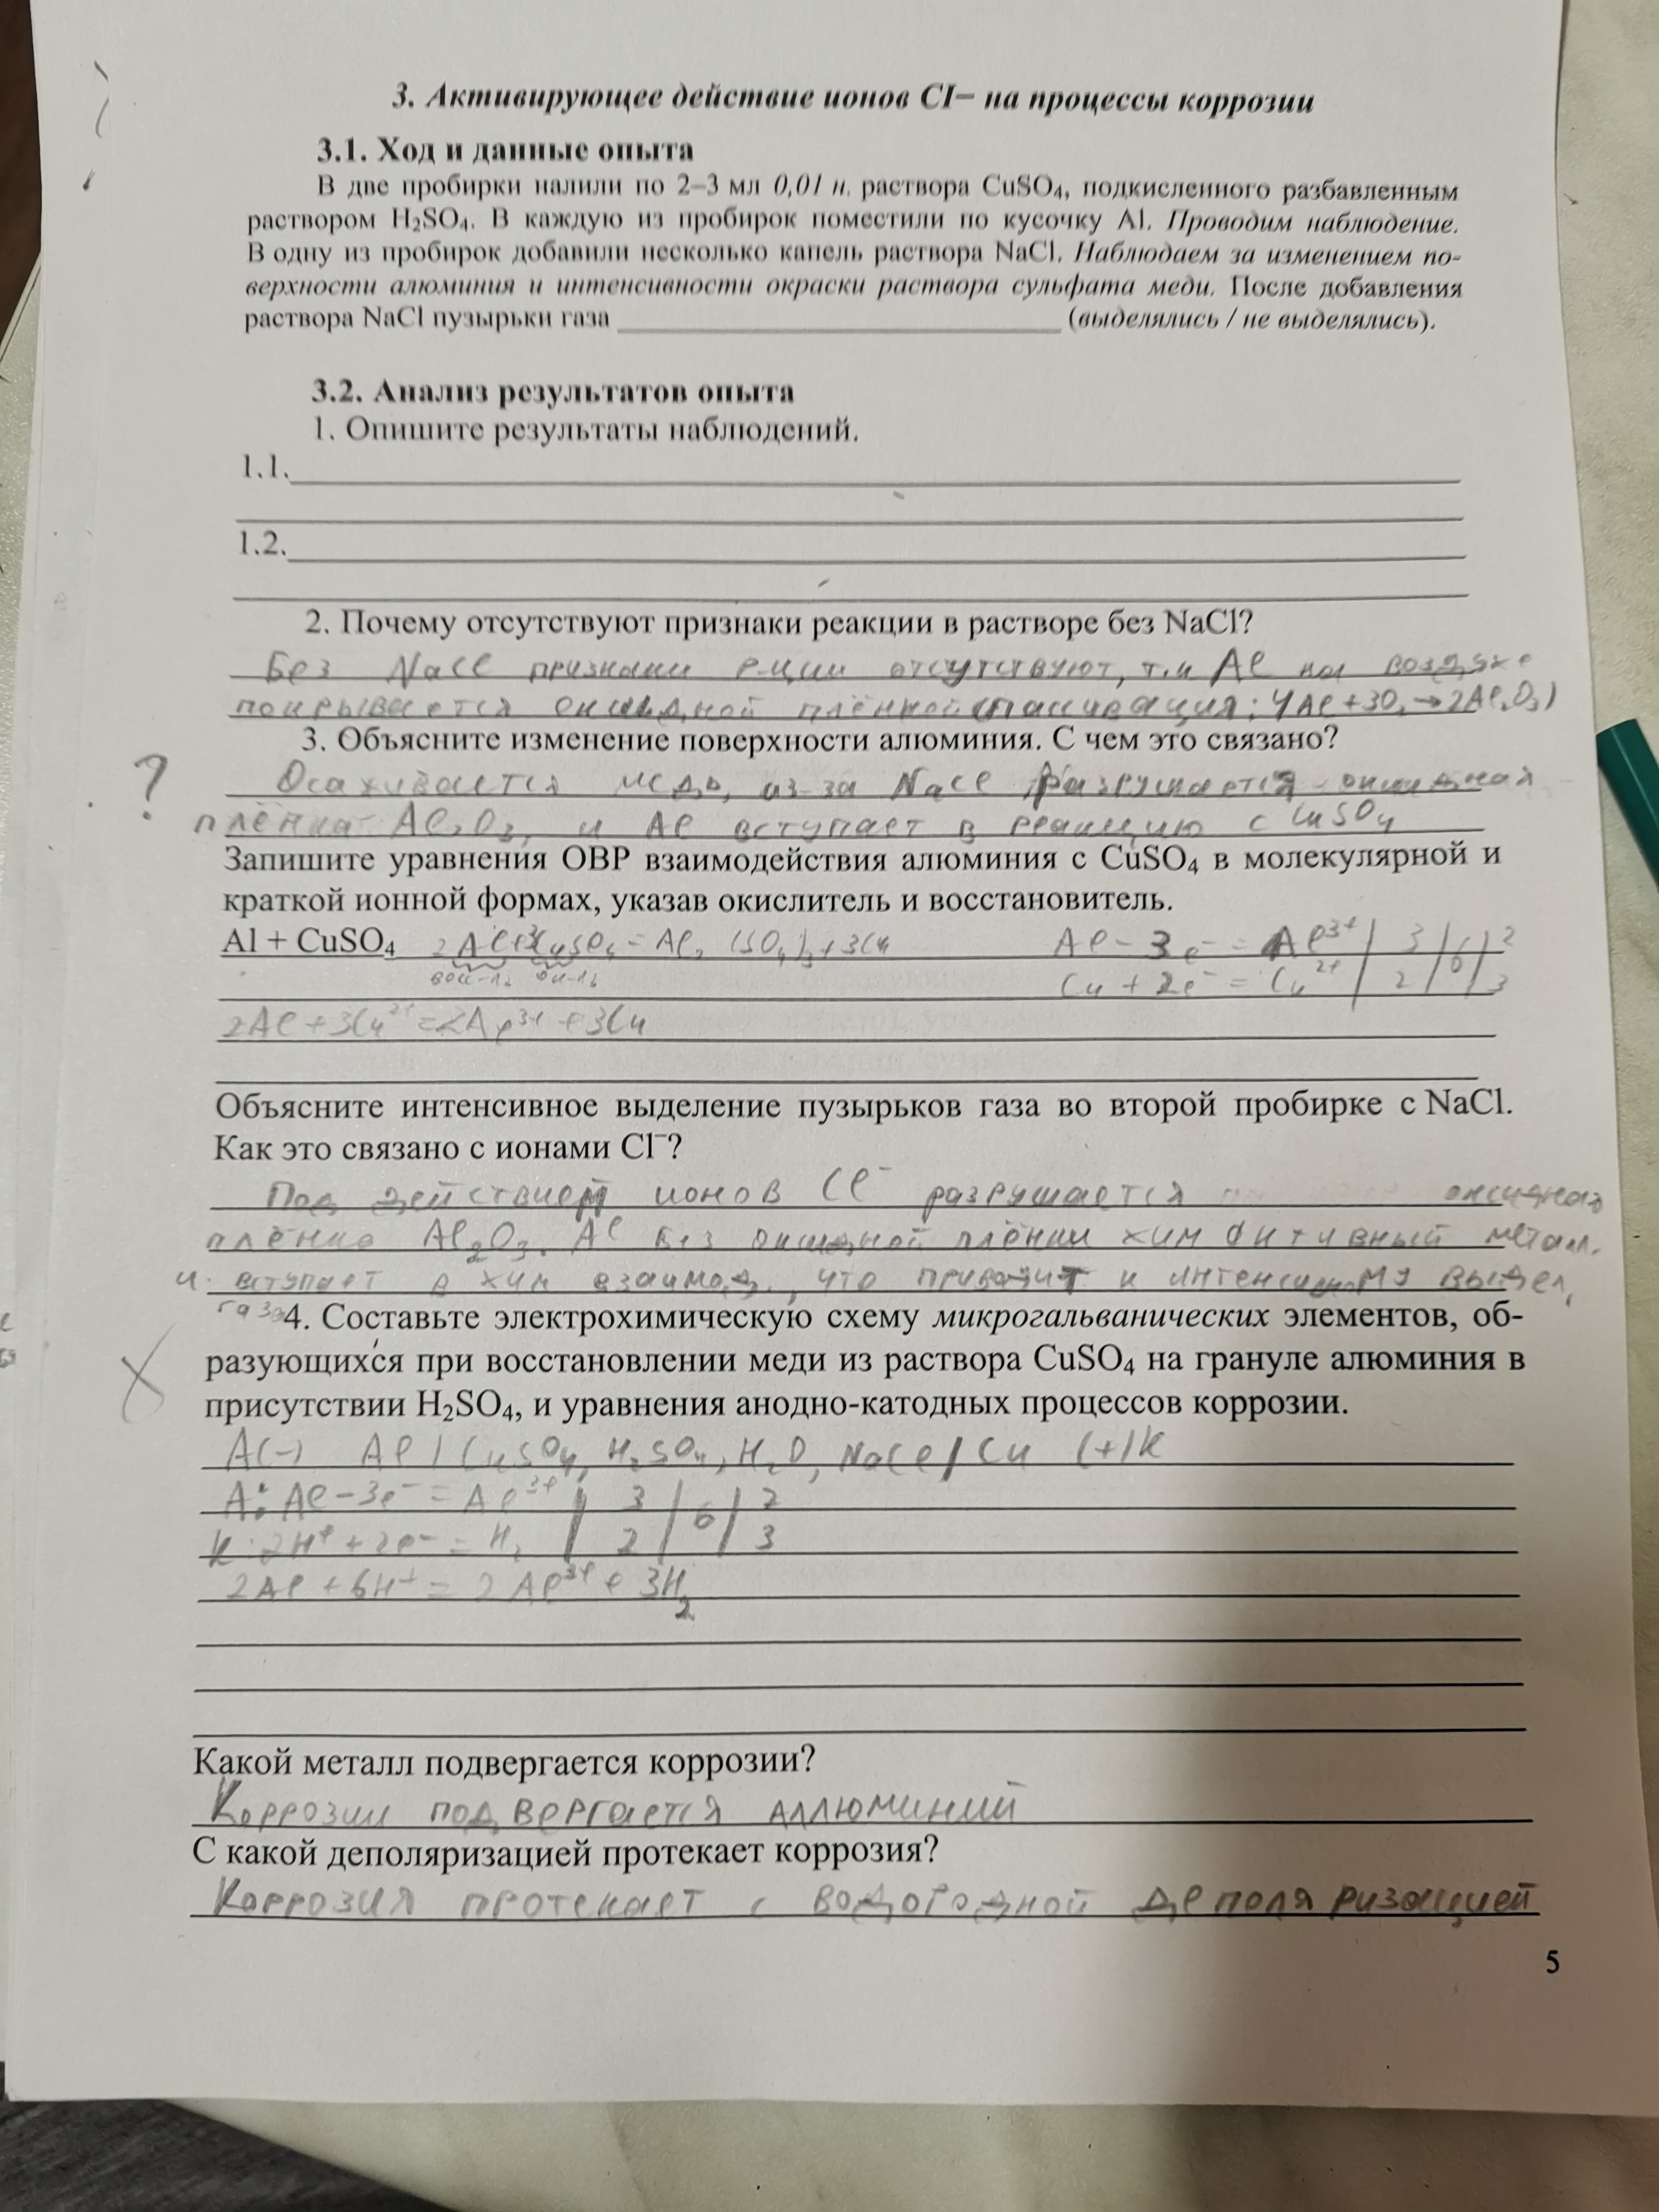 3. Активирующее действие ионов Cl− на процессы коррозии
3.1. Ход и данные опыта
В две пробирки налили по 2–3 мл 0,01 н. раствора CuSO₄, подкисленного разбавленным
раствором H₂SO₄. В каждую из пробирок поместили по кусочку Al. Проводим наблюдение.
В одну из пробирок добавили несколько капель раствора NaCl. Наблюдаем за изменением по-
верхности алюминия и интенсивности окраски раствора сульфата меди. После добавления
раствора NaCl пузырьки газа ______ (выделялись / не выделялись).
3.2. Анализ результатов опыта
1. Опишите результаты наблюдений.
1.1.
1.2.
2. Почему отсутствуют признаки реакции в растворе без NaCl?
Без NaCl признаки р-ции отсутствуют, т.к Al на воздухе
покрывается оксидной плёнкой (пассивация: 4Al+3O₂→2Al₂O₃)
3. Объясните изменение поверхности алюминия. С чем это связано?
? Осаживается медь, из-за NaCl разрушается оксидная
плёнка Al₂O₃, и Al вступает в реакцию с CuSO₄
Запишите уравнения ОВР взаимодействия алюминия с CuSO₄ в молекулярной и
краткой ионной формах, указав окислитель и восстановитель.
Al + CuSO₄ 2Al+3CuSO₄=Al₂(SO₄)₃+3Cu Al−3e⁻=Al³⁺| 3 |6| 2
вос-ль ок-ль Cu+2e⁻=Cu²⁺| 2 | | 3
2Al+3Cu²⁺=2Al³⁺+3Cu
Объясните интенсивное выделение пузырьков газа во второй пробирке с NaCl.
Как это связано с ионами Cl⁻?
Под действием ионов Cl⁻ разрушается оксидная
плёнка Al₂O₃. Al без оксидной плёнки хим активный металл.
и вступает в хим взаимод., что приводит к интенсивному выдел.
газа
4. Составьте электрохимическую схему микрогальванических элементов, об-
разующихся при восстановлении меди из раствора CuSO₄ на грануле алюминия в
присутствии H₂SO₄, и уравнения анодно-катодных процессов коррозии.
A(-) Al | CuSO₄, H₂SO₄, H₂O, NaCl | Cu (+)K
A: Al−3e⁻=Al³⁺ | 3 |6| 2
K: 2H⁺+2e⁻=H₂ | 2 | | 3
2Al+6H⁺=2Al³⁺+3H₂
Какой металл подвергается коррозии?
Коррозии подвергается аллюминий
С какой деполяризацией протекает коррозия?
Коррозия протекает с водородной деполяризацией
5